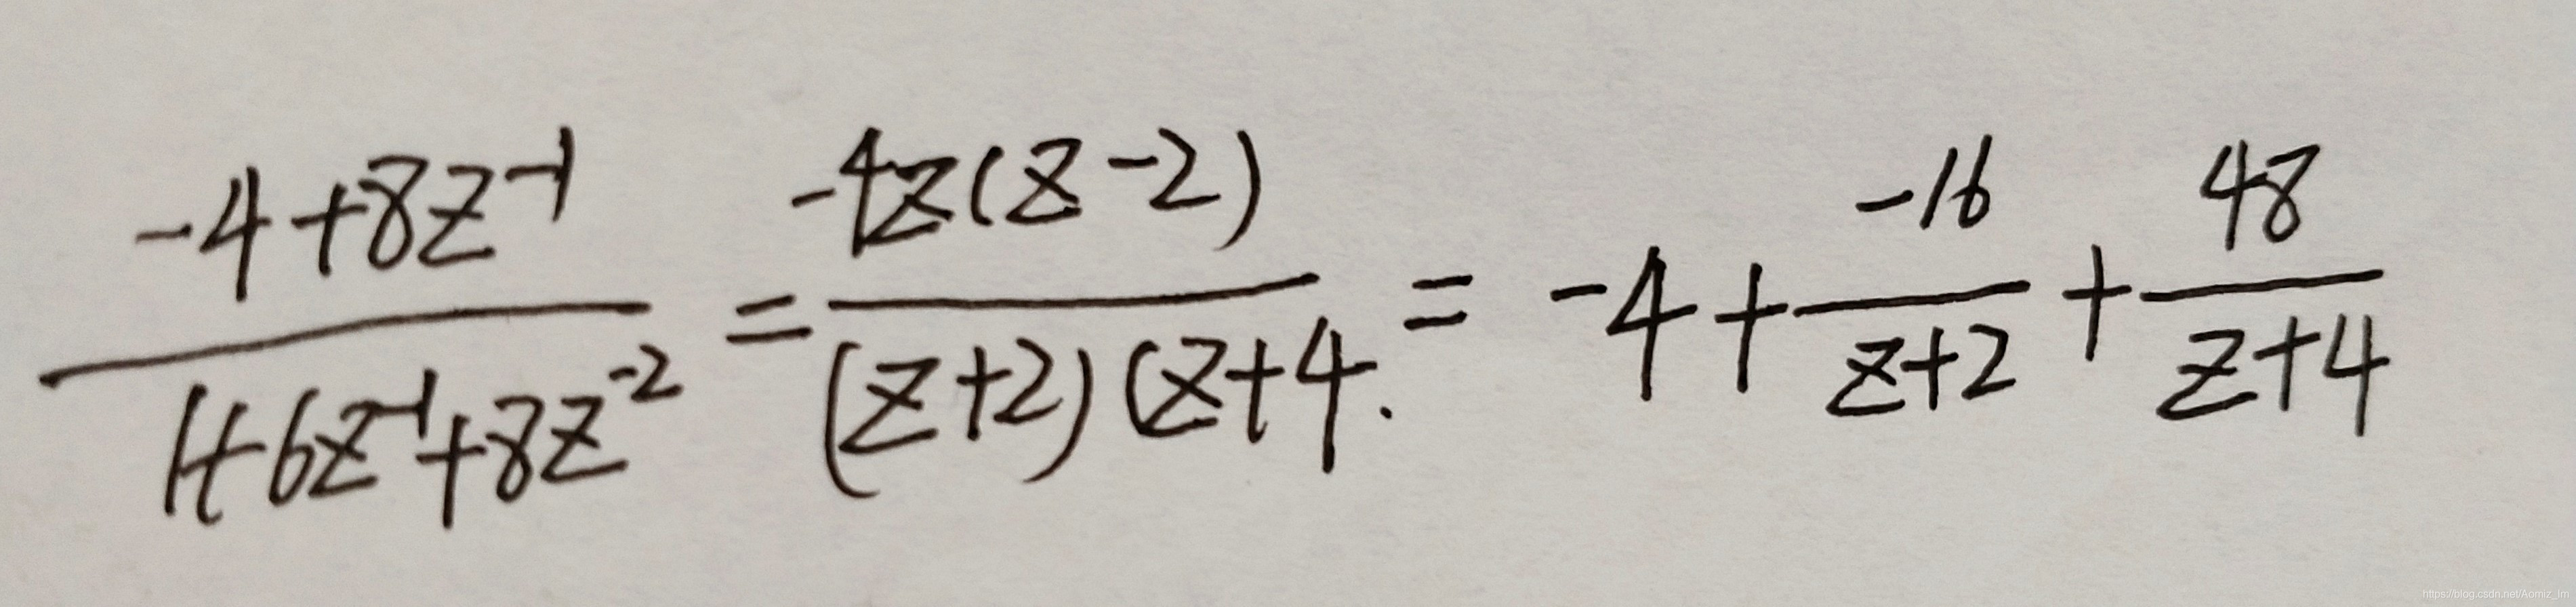 \frac{-4+8z^{-1}}{1+6z^{-1}+8z^{-2}} = \frac{-4z(z-2)}{(z+2)(z+4.} = -4+\frac{-16}{z+2}+\frac{48}{z+4}
https://blog.csdn.net/Aomiz_lm